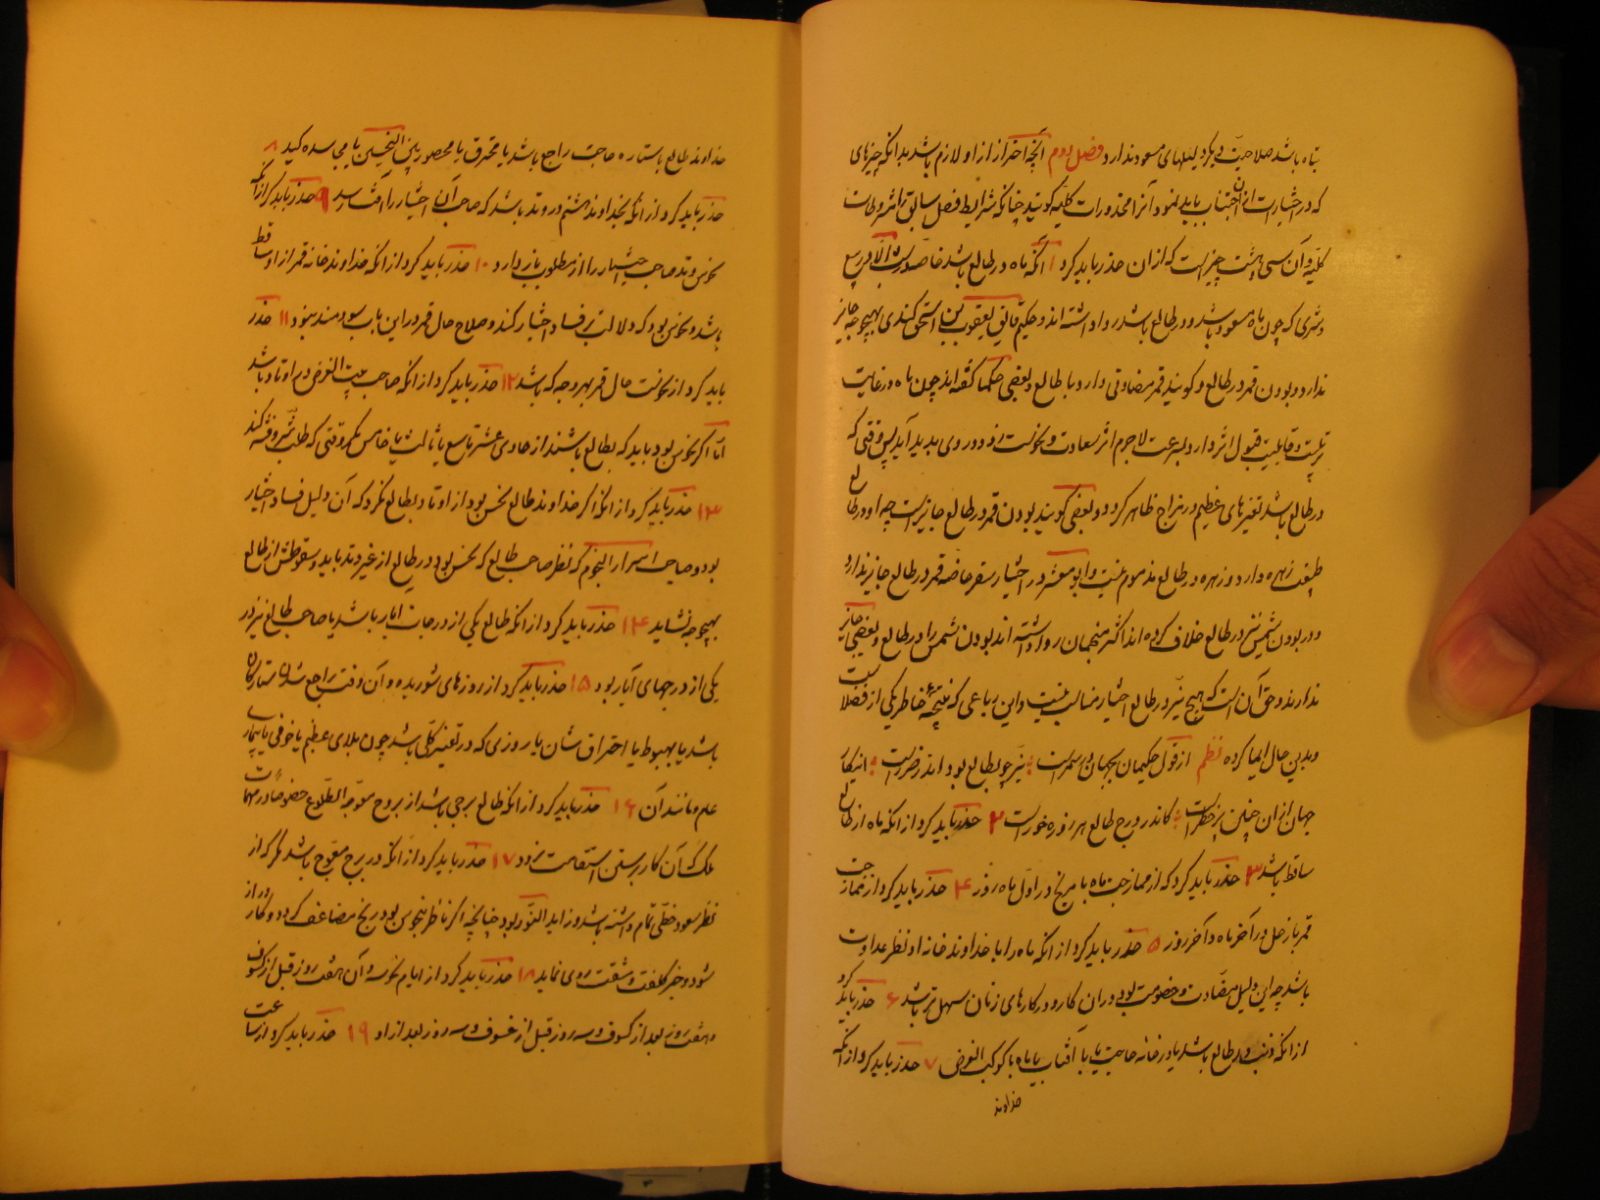 تباه باشد صلاحیت دیگر دلیلهای مسعود ندارد فصل دوم آنچه احتراز از او لازم باشد بدانکه چیزهای
که در اختیارات از آن اجتناب باید نمود آنرا محذورات کلیه گویند چنانکه شرایط فصل سابق را مشروطات
کلیه و آن سی و هشت چیز است که از آن حذر باید کرد ۱ آنکه ماه در طالع باشد خاصه در
و مشتری که چون ماه مسعود باشد و در طالع باشد روا داشته‌اند و حکیم فایق یعقوب بن اسحق کندی بهیچوجه جایز
ندارد و بودن قمر در طالع و گویند قمر مضادتی دارد با طالع و بعضی حکما گفته‌اند چون ماه در غایت
تربیت و قابلیت قبول اثر دارد بسرعت لاجرم اثر سعادت و نحوست زود در وی پدید آید پس وقتی که
در طالع باشد تغیرهای عظیم در مزاج ظاهر گردد و بعضی گویند بودن قمر در طالع جایز است چه او در طالع
طبیعت زهره دارد و زهره در طالع مذموم نیست و ابو معشر در اختیار سفر خاصه قمر در طالع جایز ندارد
و در بودن شمس نیز در طالع خلاف کرده‌اند اکثر منجمان روا داشته‌اند بودن شمس را در طالع و بعضی جایز
ندارند و حق آن است که هیچ نیر در طالع اختیار مناسب نیست و این رباعی که نتیجه خاطر یکی از فضلا است
و بدین حال ایما کرده نظم از قول حکیمان بجهان در سمرست نیر چو بطالع بود اندر ضررست
جهان از آن چنین پر خطرست کاندر ورج طالع هر روزه خورست ۲ حذر باید کرد از آنکه ماه از طالع
ساقط باشد ۳ حذر باید کرد که از ممازجت ماه با مریخ در اول ماه روز ۴ حذر باید کرد از ممازجت
قمر با زحل در آخر ماه و آخر روز ۵ حذر باید کرد از آنکه ماه را با خداوند خانه او نظر عداوت
باشد چه این دلیل مضادت و خصومت بود در آن کار و در کارهای زنان سهل تر باشد ۶ حذر باید کرد
از آنکه ذنب در طالع باشد یا در خانه حاجت یا با آفتاب یا ماه یا کوکب الغرض ۷ حذر باید کرد از آنکه
خداوند
خداوند طالع یا ستاره حاجت راجع باشد یا محترق یا محصور بین النحسین یا
۸
حذر باید کرد از آنکه خداوند هشتم در وتد باشد که صاحب آن اختیار را آفت رسد ۹ حذر باید کرد از آنکه
نحوس در وتد صاحب اختیار را از مطلوب باز دارد ۱۰ حذر باید کرد از آنکه خداوند خانه قمر از او ساقط
باشد و نحوس بود که دلالت بر فساد اختیار کند و صلاح حال قمر در این باب سودمند نبود ۱۱ حذر
باید کرد از نحوست حال قمر بهر وجه که باشد ۱۲ حذر باید کرد از آنکه صاحب بیت الغرض در اوتاد باشد
اما اگر نحوس بود باید که بطالع باشند از حادی عشر تاسع یا ثالث یا خامس مگر وقتی که طلب شر و فتنه کند
۱۳ حذر باید کرد از آنکه اگر خداوند طالع نحس بود از اوتاد بطالع نگرد که آن دلیل فساد اختیار
بود و صاحب اسرار النجوم که نظر صاحب طالع که نحس بود در طالع از غیر وتد باید و سقوطش از طالع
بهیچوجه نشاید ۱۴ حذر باید کرد از آنکه طالع یکی از درجات آبار باشد یا صاحب طالع نیز در
یکی از درجهای آبار بود ۱۵ حذر باید کرد از روزهای شوریده و آن وقت راجع شدن ستارگان
باشد یا بهبوط یا احتراق شان یا روزی که در تغییر کلی باشد چون بلای عظیم یا خوفی یا بیماری
عام و مانند آن ۱۶ حذر باید کرد از آنکه طالع برجی باشد از بروج معوجة الطلوع خصوصا در مهمات
ملک که آن کار بر سنن استقامت نرود ۱۷ حذر باید کرد از آنکه در برج معوج باشد مگر که از
نظر سعود حظی تمام داشته باشد و زاید النور بود چنانچه اگر ناظر بنحوس بود رنج مضاعف گردد و کار دراز
شود و جز کلفت و مشقت روی نماید ۱۸ حذر باید کرد از ایام نحوسه و آن هفت روز قبل از کسوف
و هفت روز بعد از کسوف و سه روز قبل از خسوف و سه روز بعد از او ۱۹ حذر باید کرد از ساعت